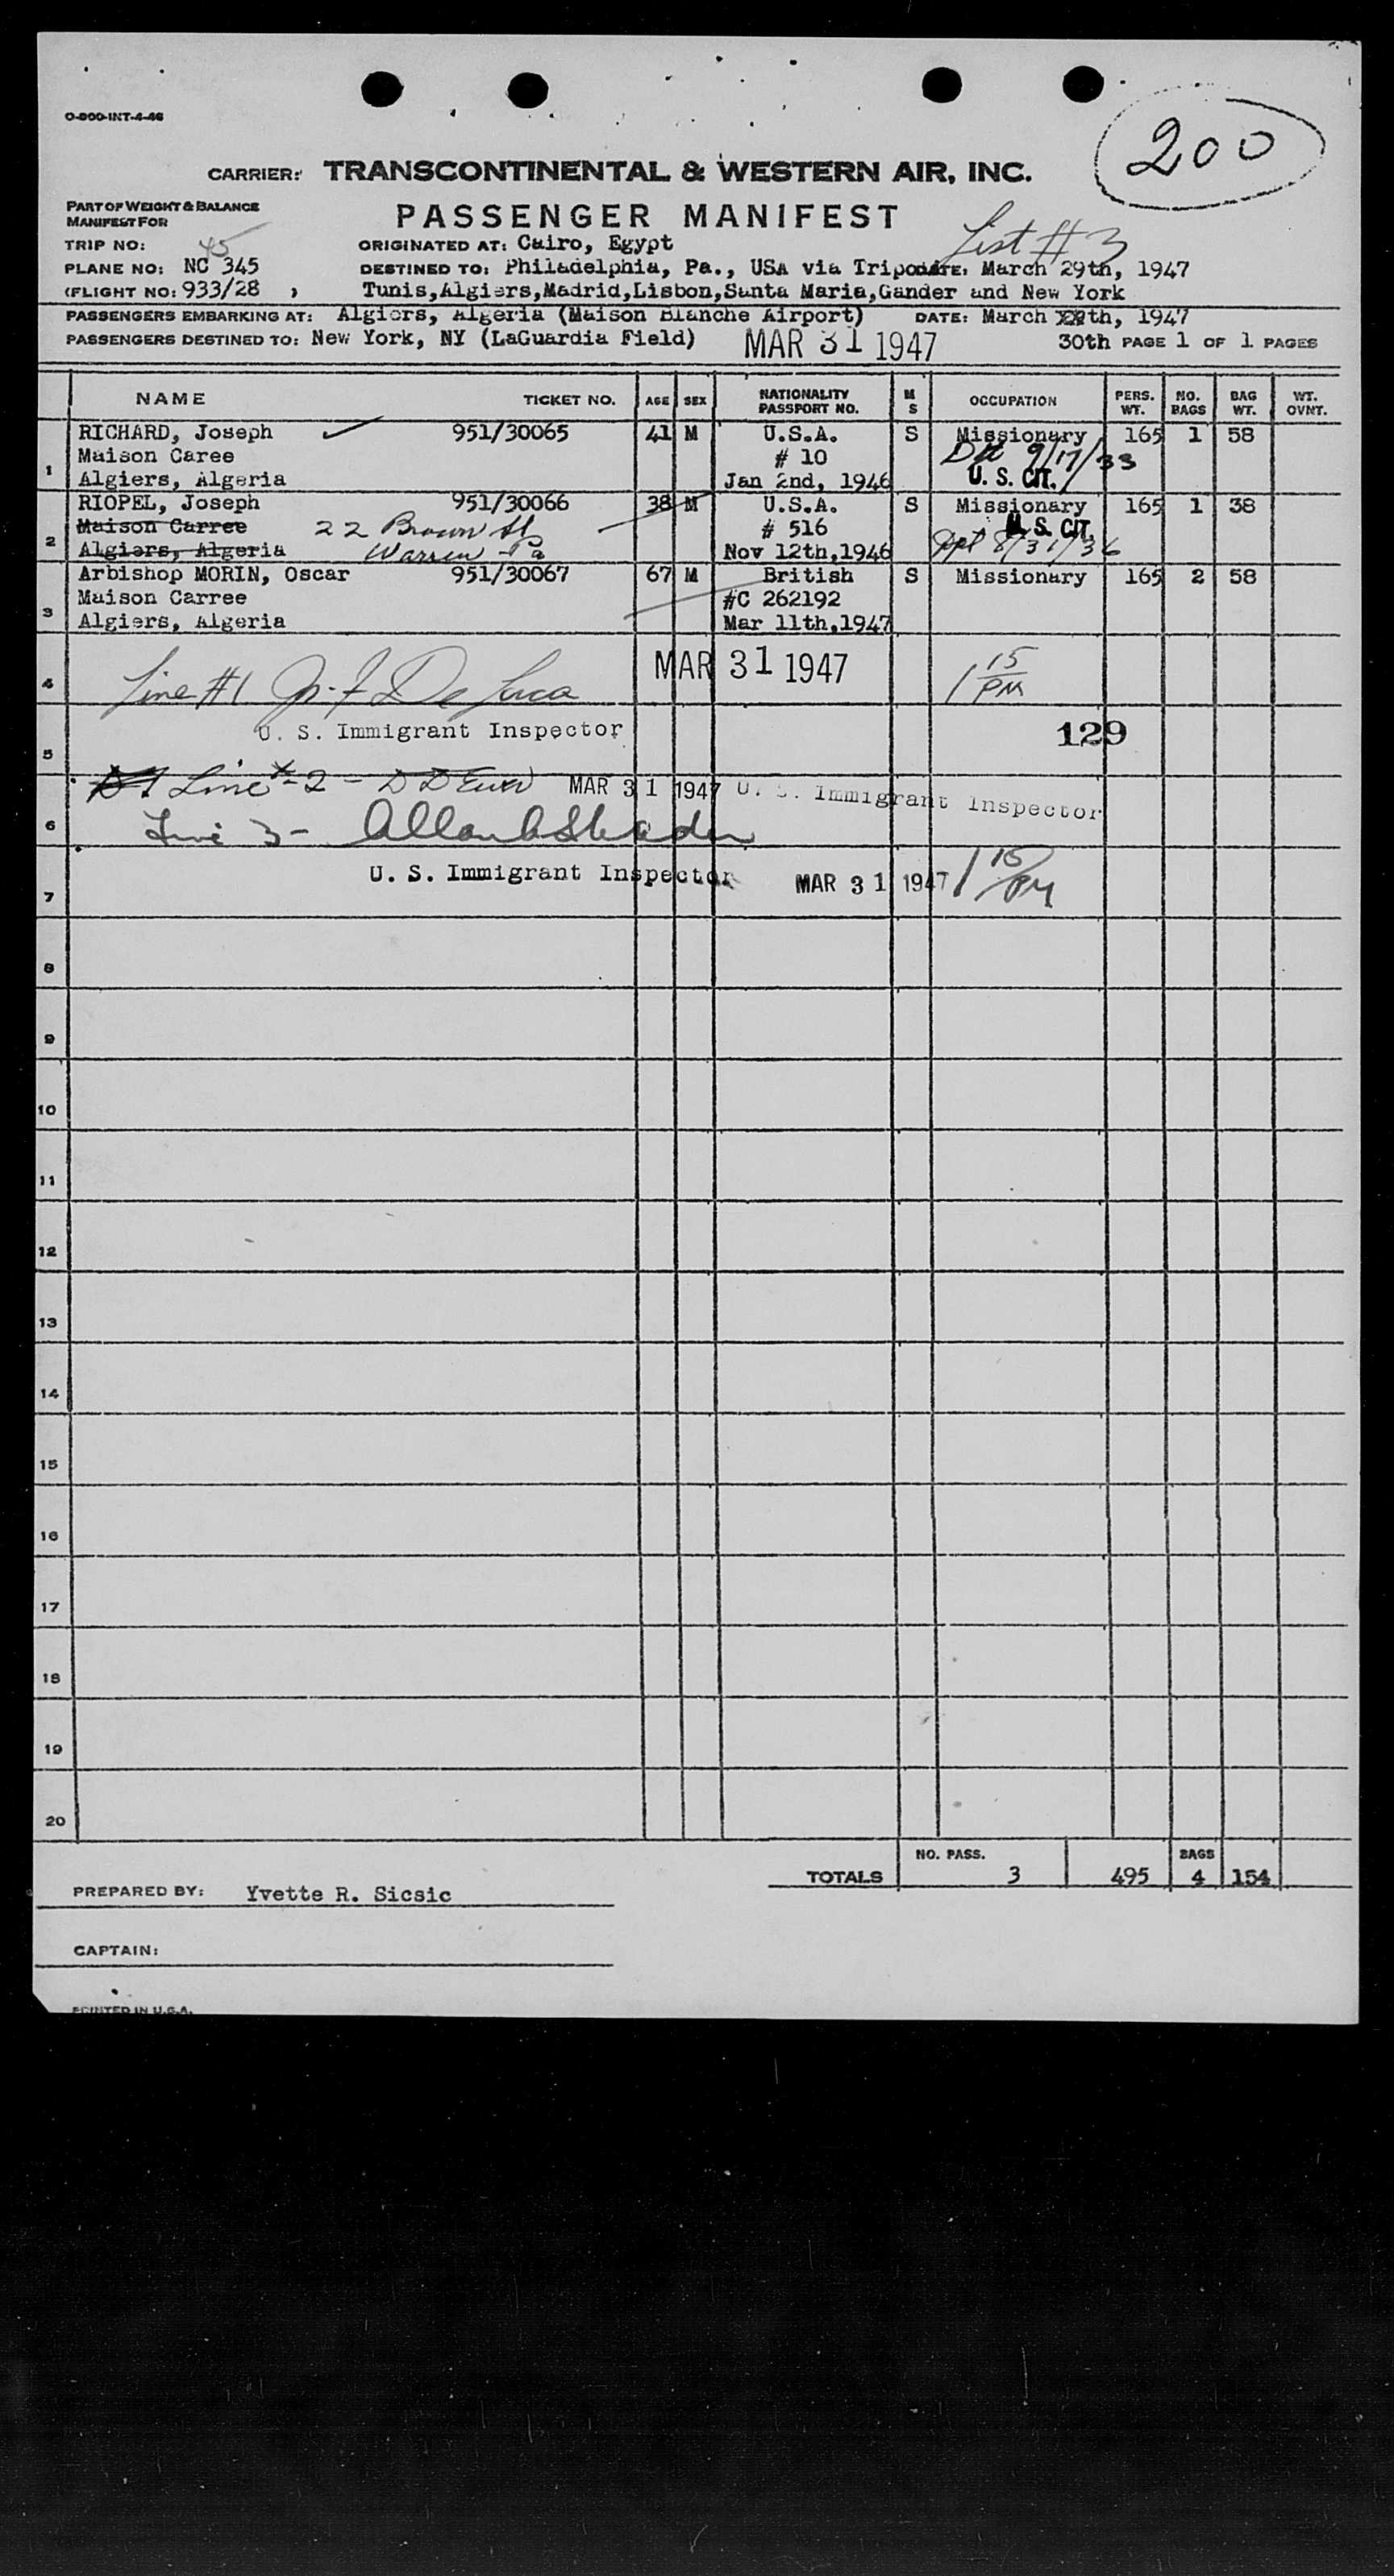 O-800-INT-4-46
200
CARRIER: TRANSCONTINENTAL & WESTERN AIR, INC.
PART OF WEIGHT & BALANCE
MANIFEST FOR
PASSENGER MANIFEST
List #3
TRIP NO: 45
ORIGINATED AT: Cairo, Egypt
PLANE NO: NC 345
DESTINED TO: Philadelphia, Pa., USA via Tripo DATE: March 29th, 1947
(FLIGHT NO: 933/28 )
Tunis,Algiers,Madrid,Lisbon,Santa Maria,Gander and New York
PASSENGERS EMBARKING AT: Algiers, Algeria (Maison Blanche Airport) DATE: March th, 1947
PASSENGERS DESTINED TO: New York, NY (LaGuardia Field) MAR 31 1947 30th PAGE 1 OF 1 PAGES
NAME TICKET NO. AGE SEX NATIONALITY PASSPORT NO. M S OCCUPATION PERS. WT. NO. BAGS BAG WT. WT. OVNT.
RICHARD, Joseph 951/30065 41 M U.S.A. S Missionary 165 1 58
Maison Caree # 10 9/17/33
1 Algiers, Algeria Jan 2nd, 1946 U. S. CIT.
RIOPEL, Joseph 951/30066 38 M U.S.A. S Missionary 165 1 38
Maison Carree 22 Brown St # 516 U. S. CIT.
2 Algiers, Algeria Warren - Pa Nov 12th,1946 Ppt 8/31/36
Arbishop MORIN, Oscar 951/30067 67 M British S Missionary 165 2 58
Maison Carree #C 262192
3 Algiers, Algeria Mar 11th,1947
4 Line #1 De Luca MAR 31 1947 1 15 PM
U. S. Immigrant Inspector 129
5
Line #2 - MAR 31 1947 U. S. Immigrant Inspector
6 Line 3 -
U. S. Immigrant Inspector MAR 31 1947 1 15 PM
7
8
9
10
11
12
13
14
15
16
17
18
19
20
TOTALS NO. PASS. 3 495 BAGS 4 154
PREPARED BY: Yvette R. Sicsic
CAPTAIN:
PRINTED IN U.S.A.